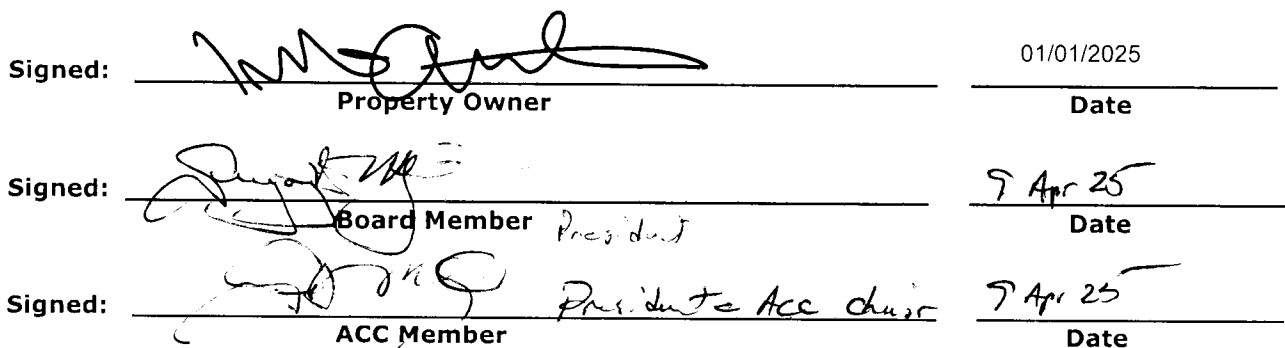 Signed: 01/01/2025
Property Owner Date
Signed: 9 Apr 25
Board Member President Date
Signed: President & ACC chair 9 Apr 25
ACC Member Date